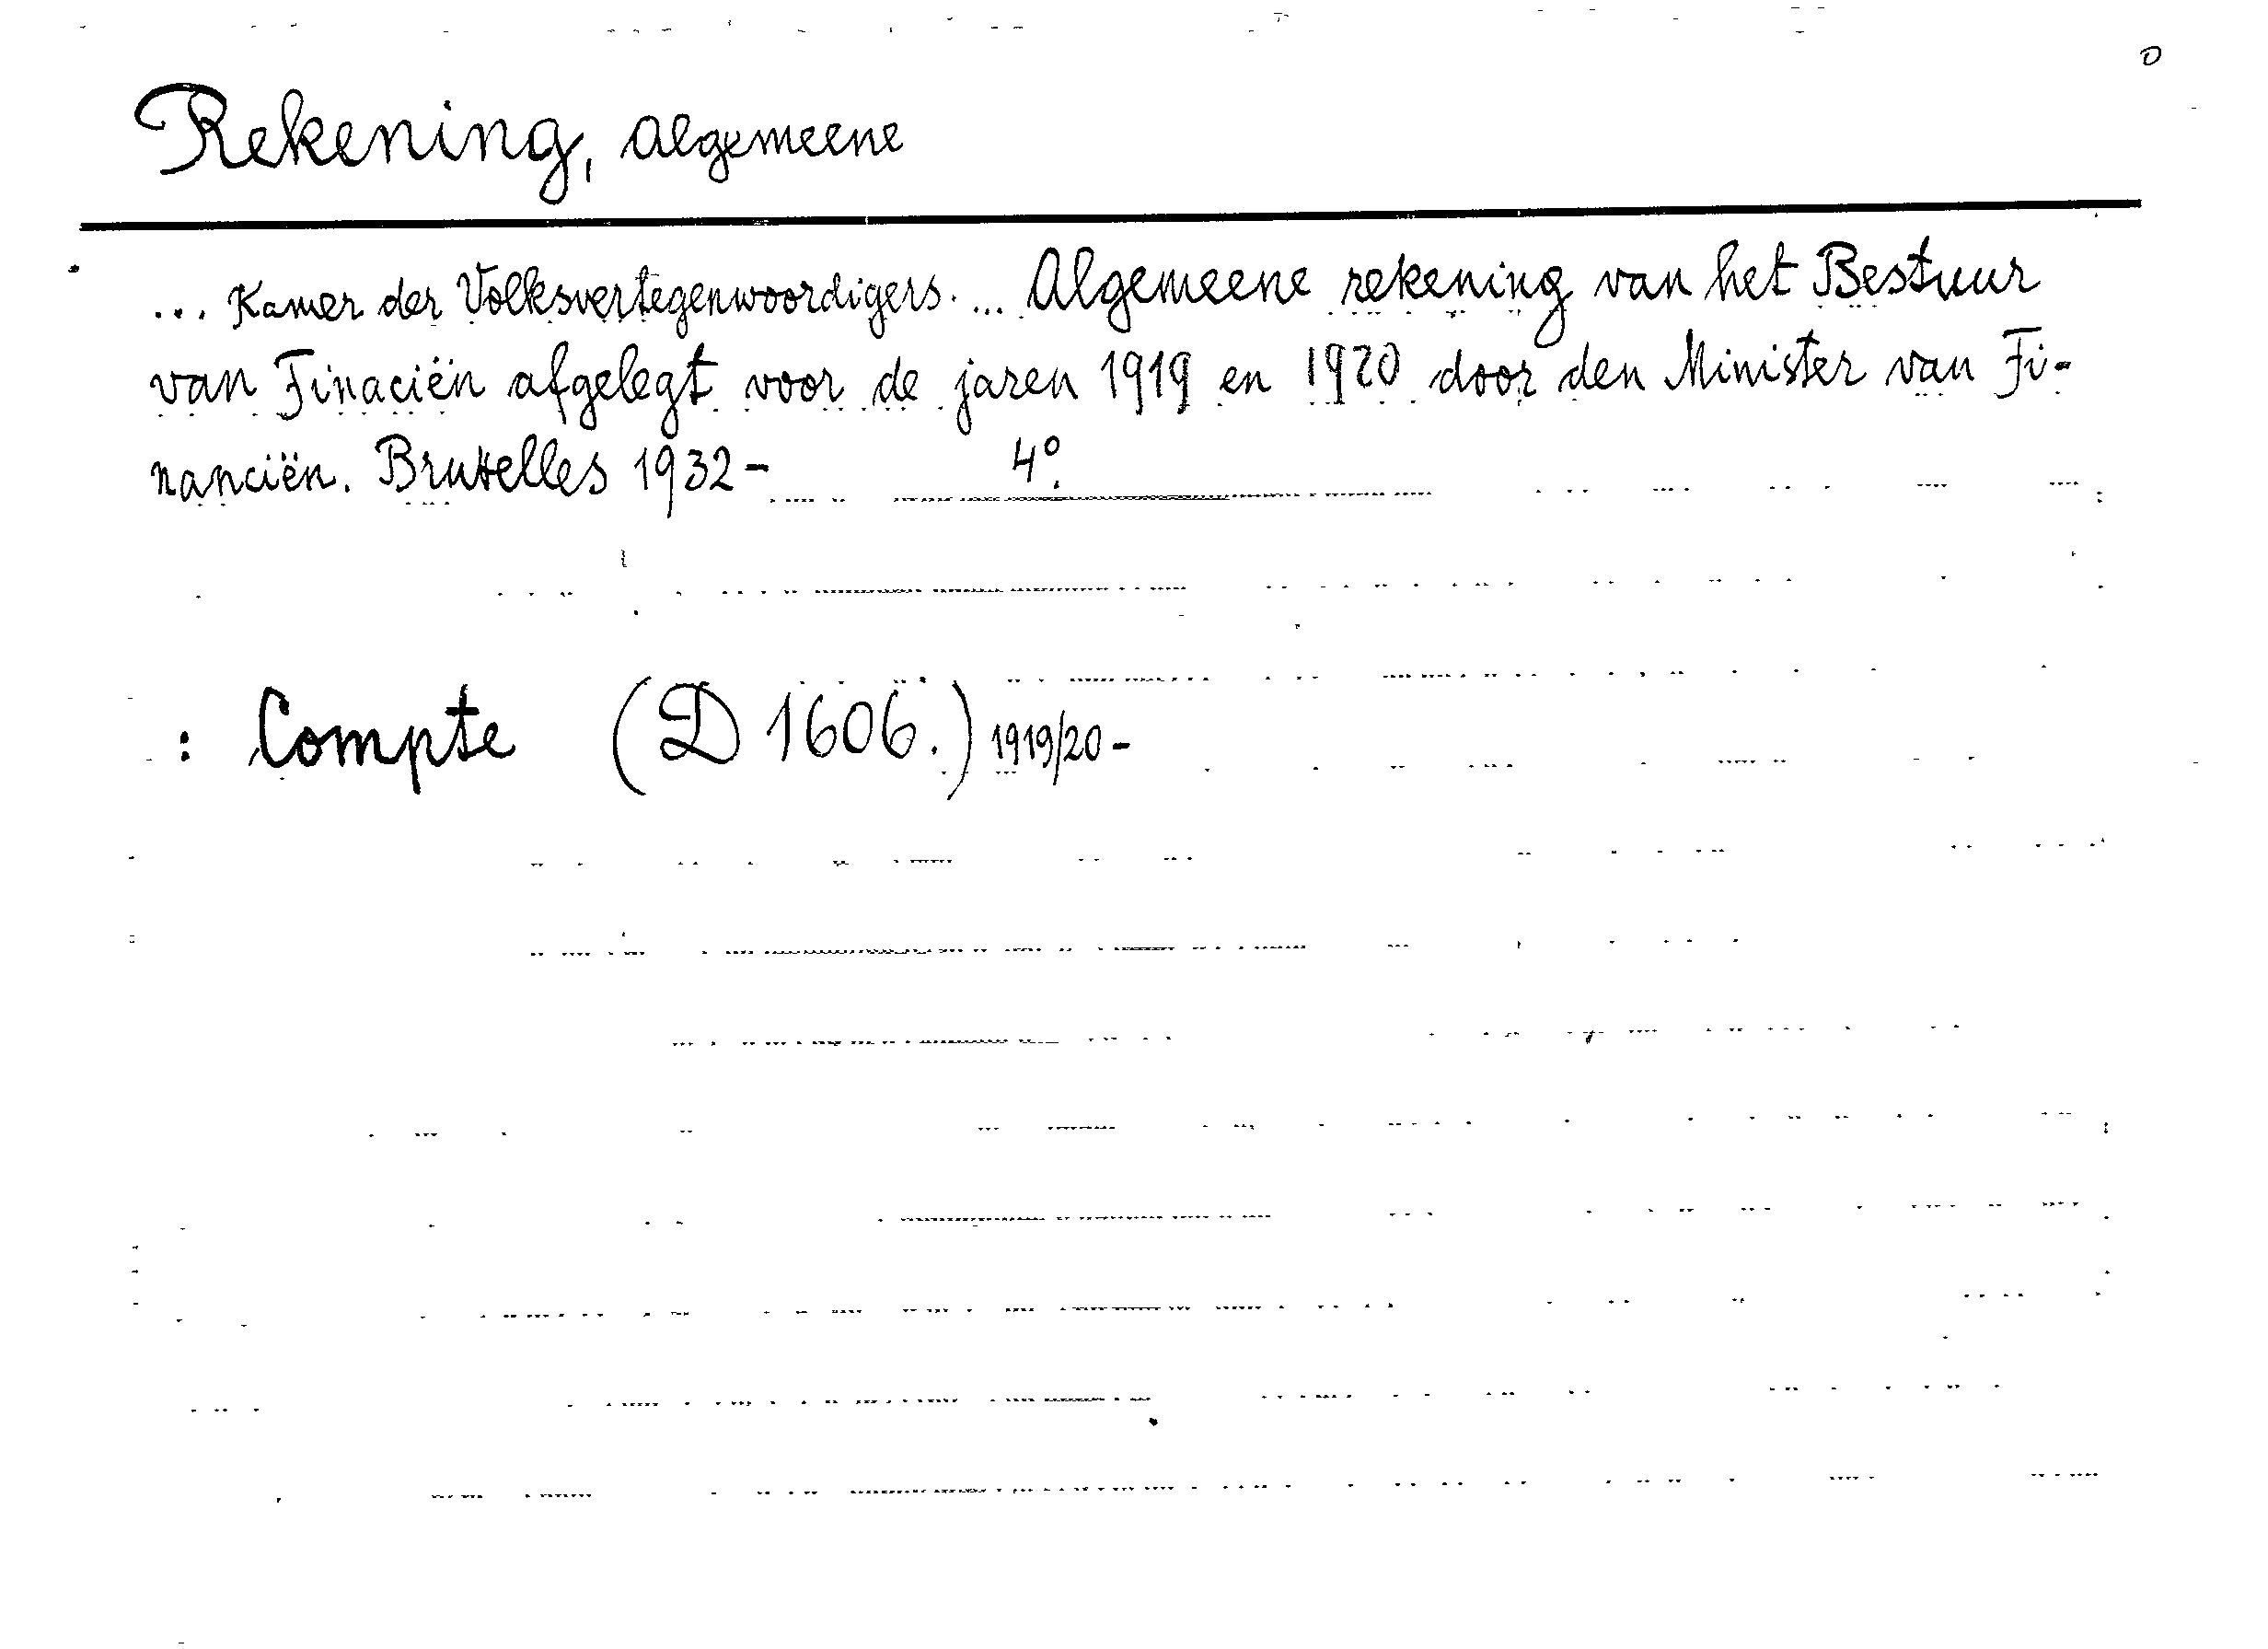 o
Rekening, algemeene
... Kamer der Volksvertegenwoordigers. ... Algemeene rekening van het Bestuur
van Finaciën afgelegt voor de jaren 1919 en 1920 door den Minister van Fi-
nanciën. Bruxelles 1932 - 4°.
: Compte (D 1606.) 1919/20 -